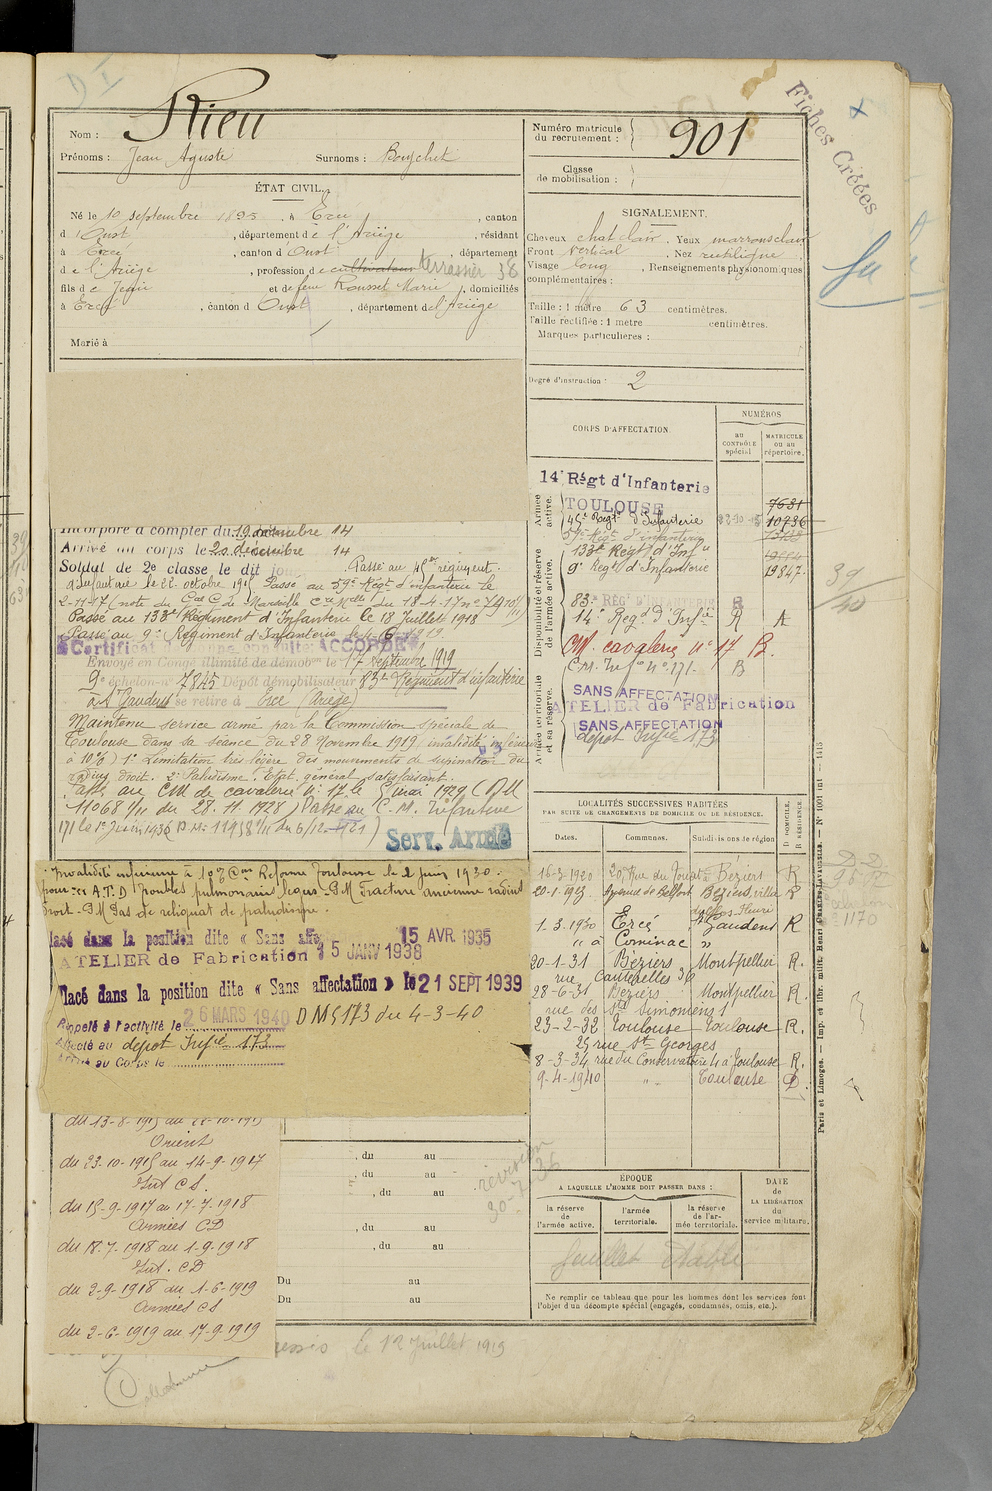 Nom : Rieu
Prénoms : Jean Aguste Surnoms : Bouychet
ÉTAT CIVIL.
Né le 10 septembre 1895, à Ercé, canton
d'Oust, département de l'Ariège, résidant
à Ercé, canton d'Oust, département
de l'Ariège, profession de cultivateur terrassier 36
fils de Jean et de feue Rousset Marie, domiciliés
à Ercé, canton d'Oust, département de l'Ariège
Marié à
Incorporé à compter du 19 décembre 14
Arrivé au corps le 20 décembre 14
Soldat de 2e classe le dit jour. Passé au 45e régiment
d'Infanterie le 22 octobre 1915 Passé au 59e Régt d'infanterie le
2-11-17 (note du Gal C de Marseille du 18-4-17 n°
Passé au 133e Régiment d'Infanterie le 18 Juillet 1918
Passé au 9e Régiment d'Infanterie le 1-6-1919
Certificat de bonne conduite: ACCORDÉ
Envoyé en Congé illimité de démobon le 17 septembre 1919
9e échelon n° 7845 Dépôt démobilisateur 83e Régiment d'infanterie
à St Gaudens se retire à Ercé (Ariège)
Maintenu service armé par la Commission spéciale de
Toulouse dans sa séance du 28 Novembre 1919, invalidité inférieure
à 10% 1° Limitation très légère des mouvements de supination du
radius droit. 2° Paludisme. Etat général satisfaisant.
Affté au CM de cavalerie n° 17 le 5 mai 1929 (DM
11068 1/11 du 28.11.1928) Passé au C.M. Infanterie
171 le 1er Juin 1936 D.M. 11958
Serv. Armé
Invalidité inférieure à 10% Con Réforme Toulouse le 2 juin 1930.
pour A.T.D poudres pulmonaires légers - PM Fracture ancienne radius
droit - PM Pas de reliquat de paludisme.
Placé dans la position dite « Sans affectation 15 AVR. 1935
ATELIER de Fabrication 15 JANV 1938
Placé dans la position dite « Sans affectation » le 21 SEPT 1939
Rappelé à l'activité le 26 MARS 1940 DM 5173 du 4-3-40
Affecté au dépôt Infie 173
Arrivé au Corps le
du 13-8-1915 au 22-10-1915
Orient
du 23-10-1915 au 14-9-1917
Int CS.
du 15-9-1917 au 17-7-1918
Armées CD
du 18.7.1918 au 1-9-1918
Int. CD
du 2-9-1918 au 1-6-1919
Armées CS
du 2-6-1919 au 17-9-1919
, du au
, du au
, du au
, du au
, du au
Du au
Du au
révision
30-7-36
le 12 Juillet 1919
Numéro matricule
du recrutement : 901
Classe
de mobilisation :
SIGNALEMENT.
Cheveux chat clair. Yeux marrons clair
Front vertical. Nez rectiligne
Visage long, Renseignements physionomiques
complémentaires :
Taille : 1 mètre 63 centimètres.
Taille rectifiée : 1 mètre centimètres.
Marques particulières :
Degré d'instruction : 2
CORPS D'AFFECTATION.
NUMÉROS
au
CONTRÔLE
spécial
MATRICULE
ou au
répertoire.
Armée
active.
14e Régt d'Infanterie
TOULOUSE 7631
45e Régt d'Infanterie 22-10-15 10736
59e Régt d'infanterie
133e Régt d'Infie
9e Régt d'Infanterie 19847
Disponibilité et réserve
de l'armée active.
83e RÉGT D'INFANTERIE R
14e Reg. D'Infie R A
CM. cavalerie n° 17 R.
C.M. Infie n° 171. R
Armée territoriale
et sa réserve.
SANS AFFECTATION
ATELIER de Fabrication
SANS AFFECTATION
dépôt Infie 173
LOCALITÉS SUCCESSIVES HABITÉES
PAR SUITE DE CHANGEMENTS DE DOMICILE OU DE RÉSIDENCE.
Dates. Communes. Subdivisions de région
D. DOMICILE.
R. RÉSIDENCE.
16-3-1920 20, rue du Jouet à Béziers R
20-1-923 Avenue de Belfort Béziers ville R
1.3.1930 Ercé St Gaudens R
" à Cominac "
20-1-31 Béziers Montpellier R.
rue Canterelles 39
28-6-31 Béziers Montpellier R.
rue des Sts Simoniens 1
23-2-32 Toulouse Toulouse R.
25 rue St Georges
8-3-34 rue du Conservatoire 4 à Toulouse R.
9-4-1940 " Toulouse D.
ÉPOQUE
A LAQUELLE L'HOMME DOIT PASSER DANS :
la réserve
de
l'armée active.
l'armée
territoriale.
la réserve
de l'ar-
mée territoriale.
DATE
de
LA LIBÉRATION
du
service militaire.
feuillet établi
Ne remplir ce tableau que pour les hommes dont les services font
l'objet d'un décompte spécial (engagés, condamnés, omis, etc.).
Fiches Créées
39/40
1170
Paris et Limoges. — Imp. et libr. milit. Henri CHARLES-LAVAUZELLE. — N° 1001 int — 1415